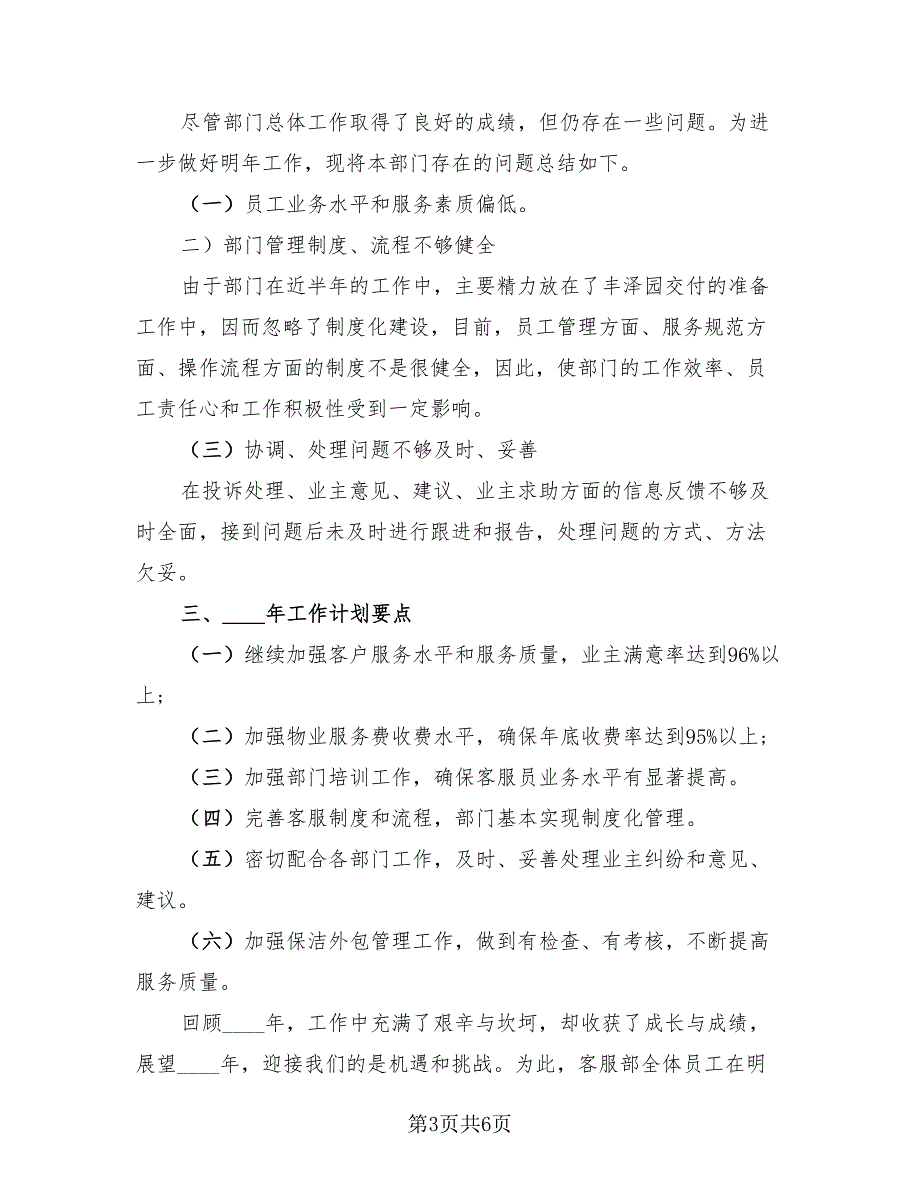 尽管部门总体工作取得了良好的成绩，但仍存在一些问题。为进
一步做好明年工作，现将本部门存在的问题总结如下。
（一）员工业务水平和服务素质偏低。
二）部门管理制度、流程不够健全
由于部门在近半年的工作中，主要精力放在了丰泽园交付的准备
工作中，因而忽略了制度化建设，目前，员工管理方面、服务规范方
面、操作流程方面的制度不是很健全，因此，使部门的工作效率、员
工责任心和工作积极性受到一定影响。
（三）协调、处理问题不够及时、妥善
在投诉处理、业主意见、建议、业主求助方面的信息反馈不够及
时全面，接到问题后未及时进行跟进和报告，处理问题的方式、方法
欠妥。
三、____年工作计划要点
（一）继续加强客户服务水平和服务质量，业主满意率达到96%以
上；
（二）加强物业服务费收费水平，确保年底收费率达到95%以上；
（三）加强部门培训工作，确保客服员业务水平有显著提高。
（四）完善客服制度和流程，部门基本实现制度化管理。
（五）密切配合各部门工作，及时、妥善处理业主纠纷和意见、
建议。
（六）加强保洁外包管理工作，做到有检查、有考核，不断提高
服务质量。
回顾____年，工作中充满了艰辛与坎坷，却收获了成长与成绩，
展望____年，迎接我们的是机遇和挑战。为此，客服部全体员工在明
第3页共6页